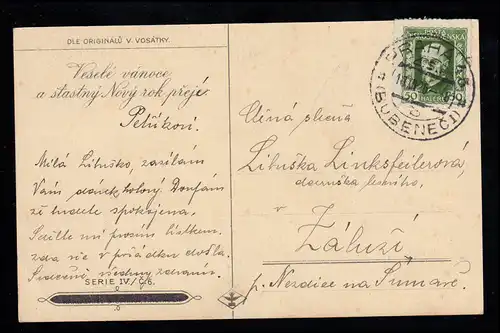 DLE ORIGINÁLŮ V. VOSÁTKY.
Veselé vánoce
a šťastný Nový rok přeje
Petříkovi.
Milá Libuško, zasílám
Vám dárek holový. Doufám
že budete spokojena.
Sdělte mi prosím lístkem,
zda vše v pořádku došlo.
všechny zdraví.
SERIE IV./Č.6.
POŠTA ČESKOSLOVENSKÁ
50 HALÉŘŮ 50
PRAHA
(BUBENEČ)
Ctěná slečna
Libuška Linksfeilerová,
dceruška lesního,
v
Záluží
p. Nezdice na Šumavě.